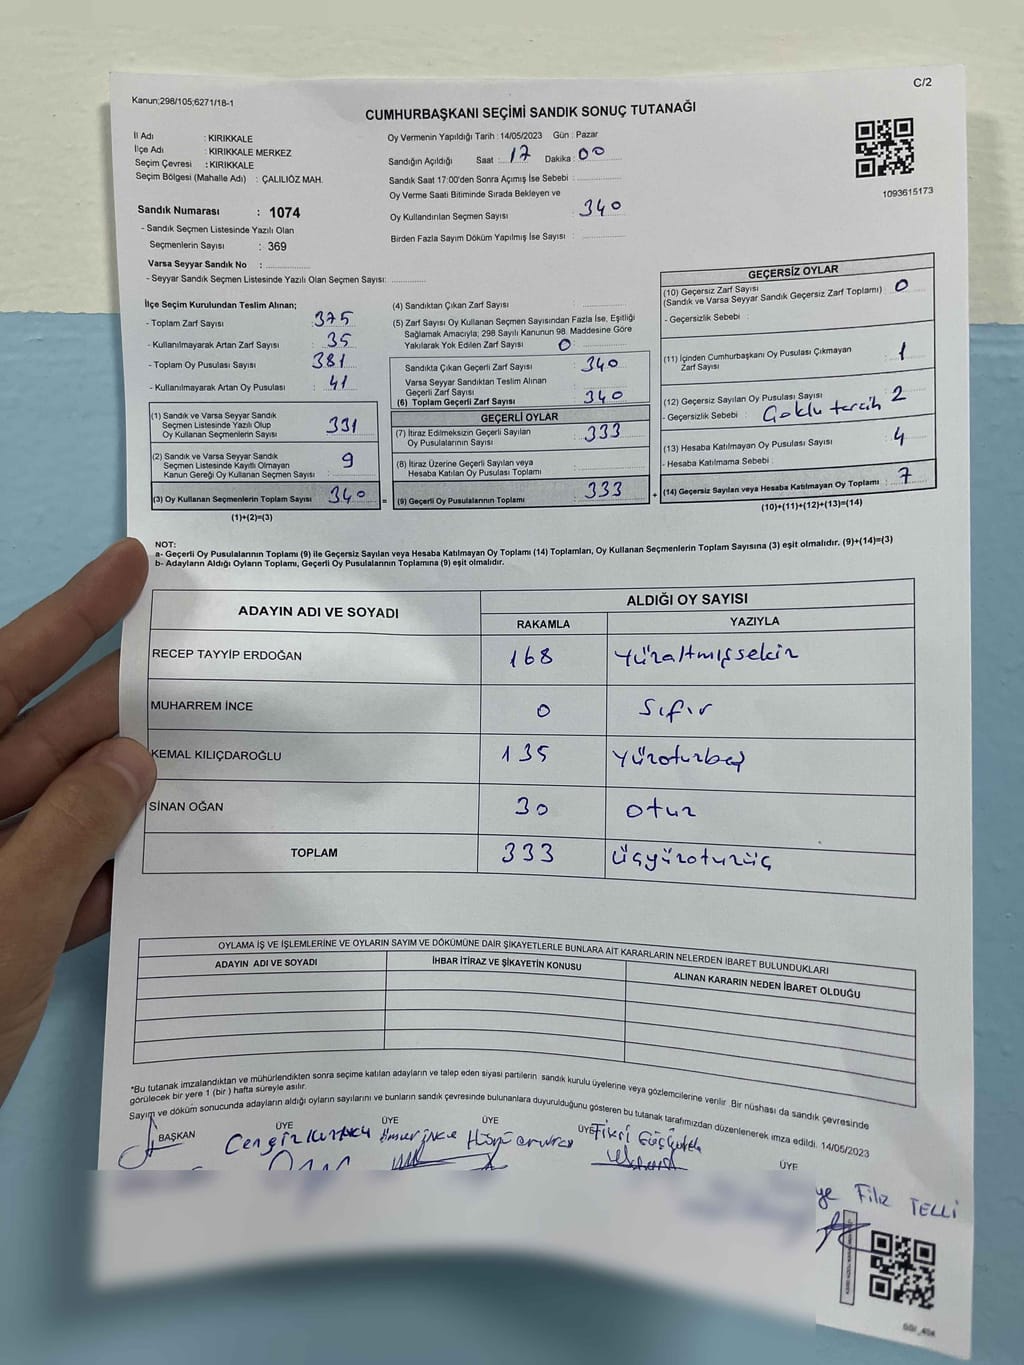 C/2
Kanun;298/105;6271/18-1
CUMHURBAŞKANI SEÇİMİ SANDIK SONUÇ TUTANAĞI
1093615173
İl Adı : KIRIKKALE
İlçe Adı : KIRIKKALE MERKEZ
Seçim Çevresi : KIRIKKALE
Seçim Bölgesi (Mahalle Adı) : ÇALILIÖZ MAH.
Sandık Numarası : 1074
- Sandık Seçmen Listesinde Yazılı Olan
Seçmenlerin Sayısı : 369
Varsa Seyyar Sandık No :
- Seyyar Sandık Seçmen Listesinde Yazılı Olan Seçmen Sayısı:
Oy Vermenin Yapıldığı Tarih : 14/05/2023 Gün : Pazar
Sandığın Açıldığı Saat : 17 Dakika : 00
Sandık Saat 17:00'den Sonra Açımış İse Sebebi :
Oy Verme Saati Bitiminde Sırada Bekleyen ve
Oy Kullandırılan Seçmen Sayısı : 340
Birden Fazla Sayım Döküm Yapılmış İse Sayısı :
İlçe Seçim Kurulundan Teslim Alınan;
- Toplam Zarf Sayısı : 375
- Kullanılmayarak Artan Zarf Sayısı : 35
- Toplam Oy Pusulası Sayısı : 381
- Kullanılmayarak Artan Oy Pusulası : 41
(1) Sandık ve Varsa Seyyar Sandık
Seçmen Listesinde Yazılı Olup
Oy Kullanan Seçmenlerin Sayısı : 331
(2) Sandık ve Varsa Seyyar Sandık
Seçmen Listesinde Kayıtlı Olmayan
Kanun Gereği Oy Kullanan Seçmen Sayısı : 9
(3) Oy Kullanan Seçmenlerin Toplam Sayısı : 340 =
(1)+(2)=(3)
(4) Sandıktan Çıkan Zarf Sayısı :
(5) Zarf Sayısı Oy Kullanan Seçmen Sayısından Fazla İse, Eşitliği
Sağlamak Amacıyla; 298 Sayılı Kanunun 98. Maddesine Göre
Yakılarak Yok Edilen Zarf Sayısı : 0
Sandıkta Çıkan Geçerli Zarf Sayısı : 340
Varsa Seyyar Sandıktan Teslim Alınan
Geçerli Zarf Sayısı :
(6) Toplam Geçerli Zarf Sayısı : 340
GEÇERLİ OYLAR
(7) İtiraz Edilmeksizin Geçerli Sayılan
Oy Pusulalarının Sayısı : 333
(8) İtiraz Üzerine Geçerli Sayılan veya
Hesaba Katılan Oy Pusulası Toplamı :
(9) Geçerli Oy Pusulalarının Toplamı : 333 +
GEÇERSİZ OYLAR
(10) Geçersiz Zarf Sayısı
(Sandık ve Varsa Seyyar Sandık Geçersiz Zarf Toplamı) : 0
- Geçersizlik Sebebi :
(11) İçinden Cumhurbaşkanı Oy Pusulası Çıkmayan
Zarf Sayısı : 1
(12) Geçersiz Sayılan Oy Pusulası Sayısı : 2
- Geçersizlik Sebebi : Çoklu tercih
(13) Hesaba Katılmayan Oy Pusulası Sayısı : 4
- Hesaba Katılmama Sebebi :
(14) Geçersiz Sayılan veya Hesaba Katılmayan Oy Toplamı : 7
(10)+(11)+(12)+(13)=(14)
NOT:
a- Geçerli Oy Pusulalarının Toplamı (9) ile Geçersiz Sayılan veya Hesaba Katılmayan Oy Toplamı (14) Toplamları, Oy Kullanan Seçmenlerin Toplam Sayısına (3) eşit olmalıdır. (9)+(14)=(3)
b- Adayların Aldığı Oyların Toplamı, Geçerli Oy Pusulalarının Toplamına (9) eşit olmalıdır.
ADAYIN ADI VE SOYADI ALDIĞI OY SAYISI
RAKAMLA YAZIYLA
RECEP TAYYİP ERDOĞAN 168 Yüzaltmışsekiz
MUHARREM İNCE 0 Sıfır
KEMAL KILIÇDAROĞLU 135 Yüzotuzbeş
SİNAN OĞAN 30 otuz
TOPLAM 333 üçyüzotuzüç
OYLAMA İŞ VE İŞLEMLERİNE VE OYLARIN SAYIM VE DÖKÜMÜNE DAİR ŞİKAYETLERLE BUNLARA AİT KARARLARIN NELERDEN İBARET BULUNDUKLARI
ADAYIN ADI VE SOYADI İHBAR İTİRAZ VE ŞİKAYETİN KONUSU ALINAN KARARIN NEDEN İBARET OLDUĞU
*Bu tutanak imzalandıktan ve mühürlendikten sonra seçime katılan adayların ve talep eden siyasi partilerin sandık kurulu üyelerine veya gözlemcilerine verilir. Bir nüshası da sandık çevresinde
görülecek bir yere 1 (bir ) hafta süreyle asılır.
Sayım ve döküm sonucunda adayların aldığı oyların sayılarını ve bunların sandık çevresinde bulunanlara duyurulduğunu gösteren bu tutanak tarafımızdan düzenlenerek imza edildi. 14/05/2023
BAŞKAN ÜYE ÜYE ÜYE ÜYE ÜYE
Filiz TELLİ